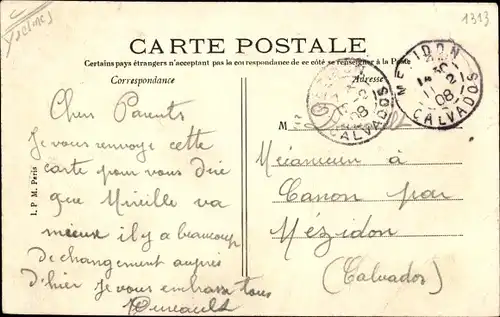 1313
CARTE POSTALE
Certains pays étrangers n'acceptant pas la correspondance de ce côté se renseigner à la Poste
Correspondance
Adresse
MEZIDON
11 2
08
CALVADOS
08
CALVADOS
Chers Parents
Je vous renvoye cette
carte pour vous dire
que Mireille va
mieux il y a beaucoup
de changement auprès
d'hier Je vous embrasse tous
M
Mécanicien à
Canon par
Mézidon
(Calvados)
I. P. M. Paris